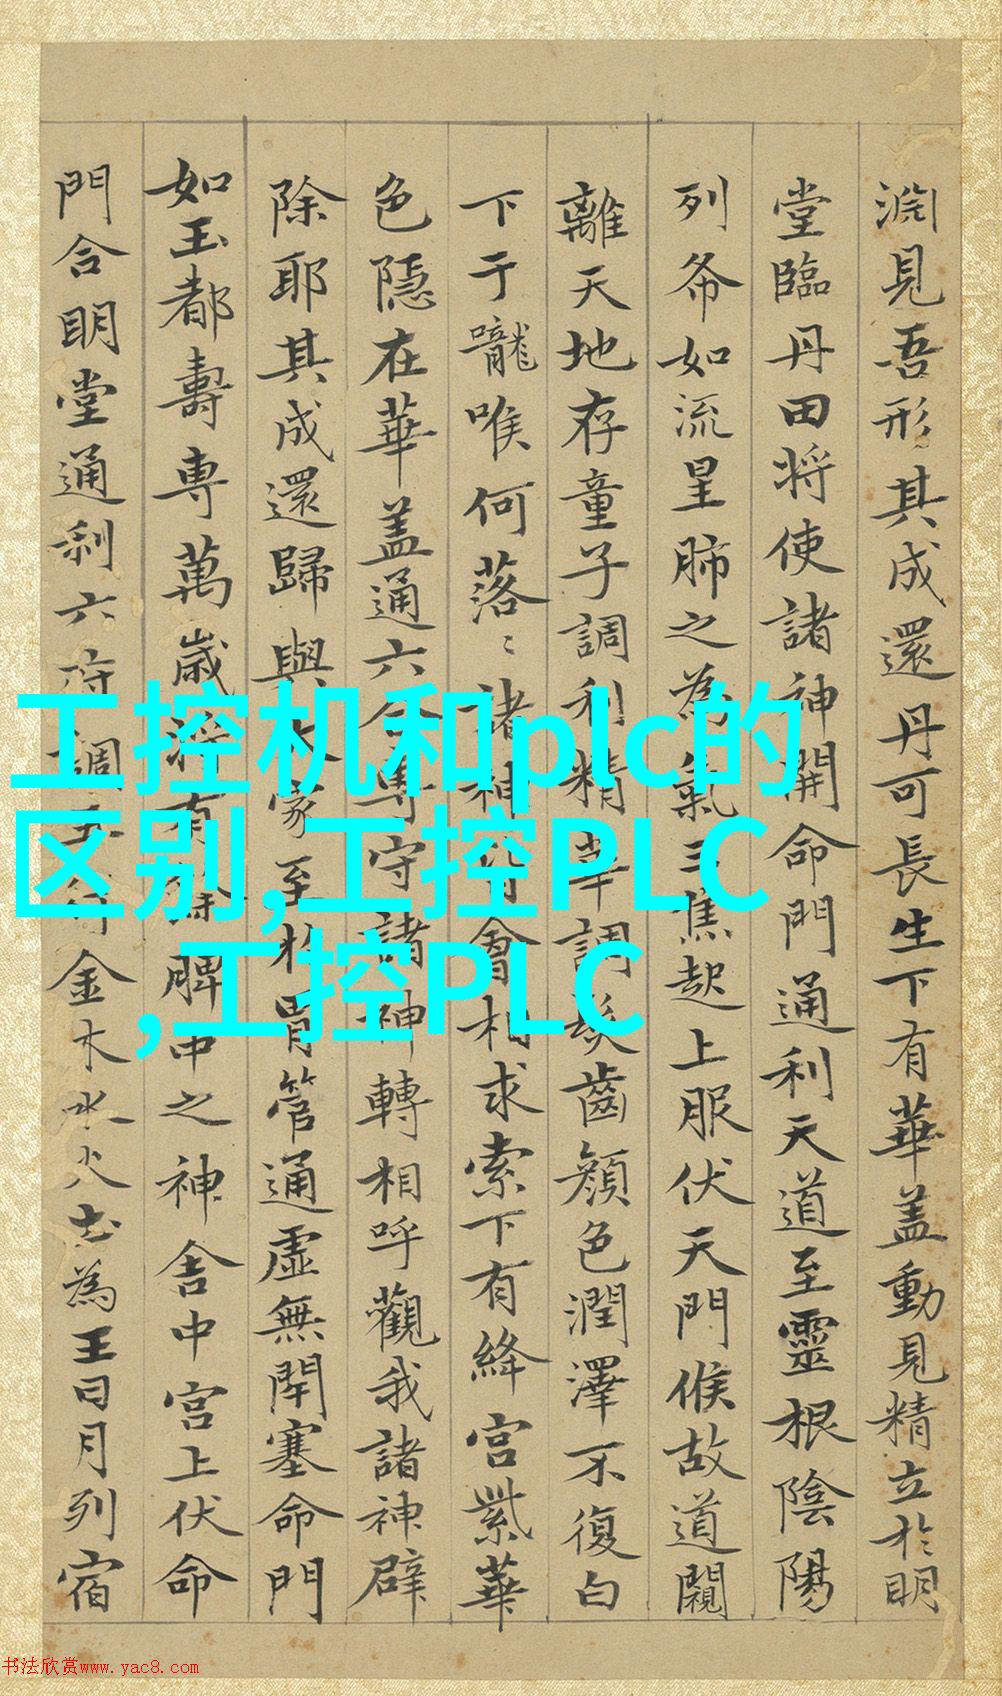 渊見吾形其成還丹可長生下有華盖動見精立於明
堂臨丹田将使諸神開命門通利天道至靈根陰陽
列布如流星肺之為氣三焦起上服伏天門候故道闚
離天地存童子調利精華調髮齒顔色潤澤不復白
下于嚨唯何落〻諸神皆會相求索下有絳宮紫華
色隱在華盖通六合專守諸神轉相呼觀我諸神辟
除耶其成還歸與大家至於胃管通虛無閉塞命門
如玉都壽專萬歲将有餘脾中之神舍中宮上伏命
門合明堂通利六府調五行金木水火土為王日月列宿
工控机和plc的
区别,工控PLC
,工控PLC
书法欣赏www.yac8.com